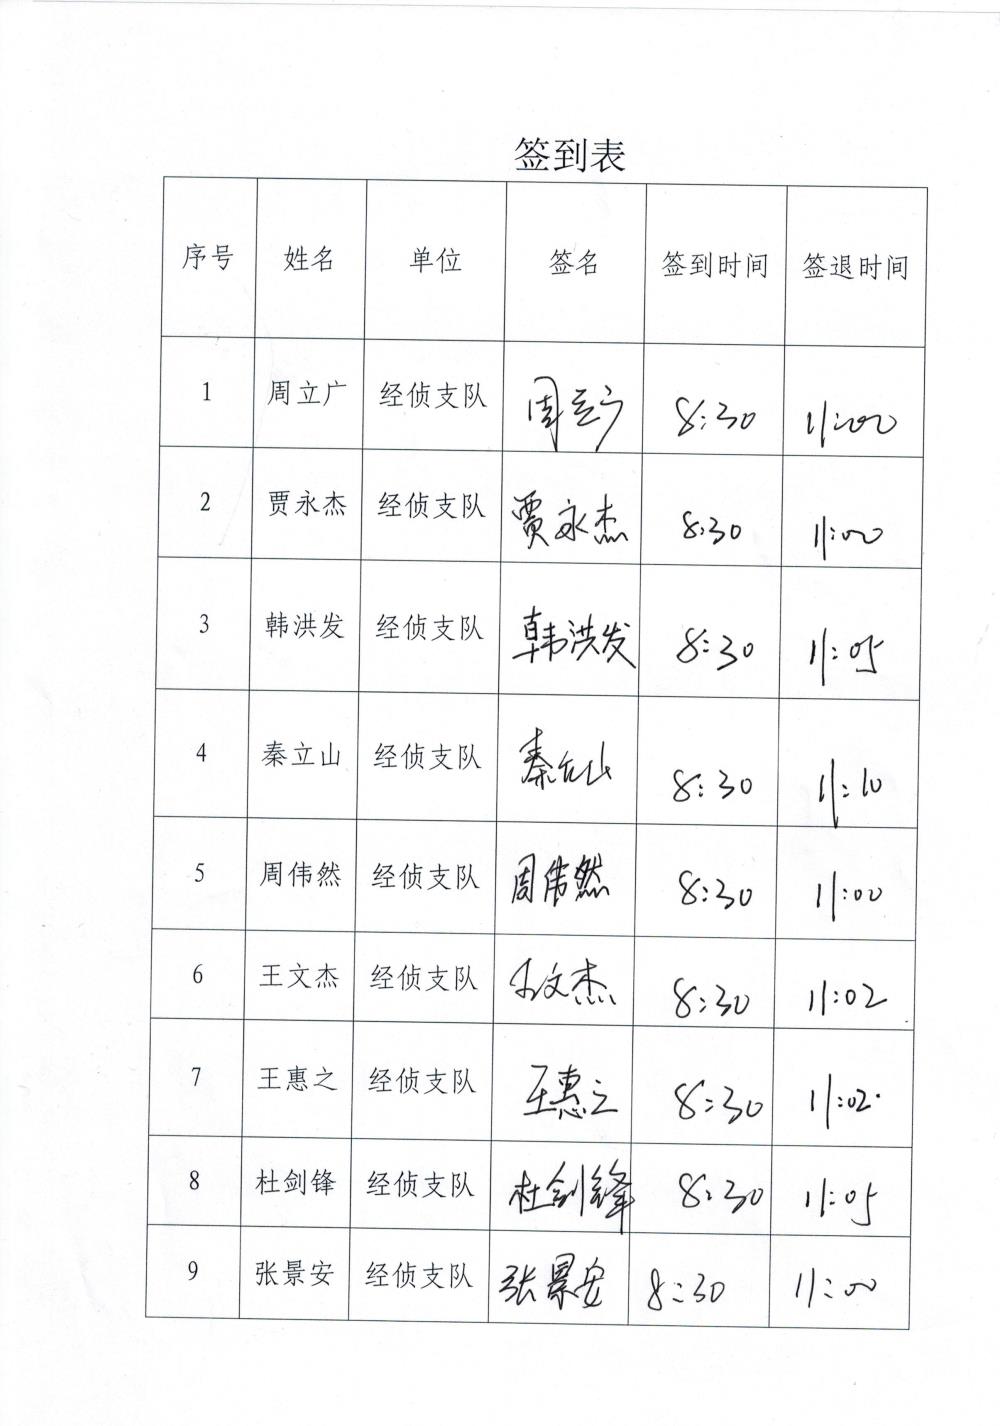 签到表
序号 姓名 单位 签名 签到时间 签退时间
1 周立广 经侦支队 周立广 8:30 11:00
2 贾永杰 经侦支队 贾永杰 8:30 11:00
3 韩洪发 经侦支队 韩洪发 8:30 11:05
4 秦立山 经侦支队 秦立山 8:30 11:10
5 周伟然 经侦支队 周伟然 8:30 11:00
6 王文杰 经侦支队 王文杰 8:30 11:02
7 王惠之 经侦支队 王惠之 8:30 11:02
8 杜剑锋 经侦支队 杜剑锋 8:30 11:05
9 张景安 经侦支队 张景安 8:30 11:00